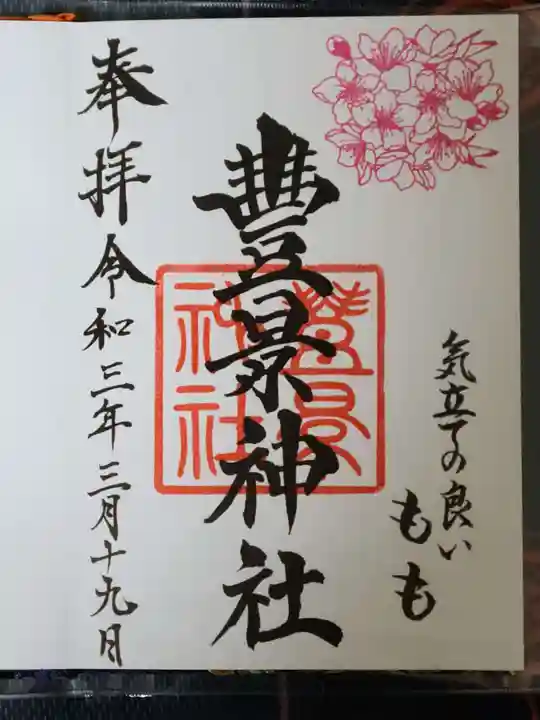 気立ての良い
もも
豊景神社
豊景神社
奉拝 令和三年三月十九日